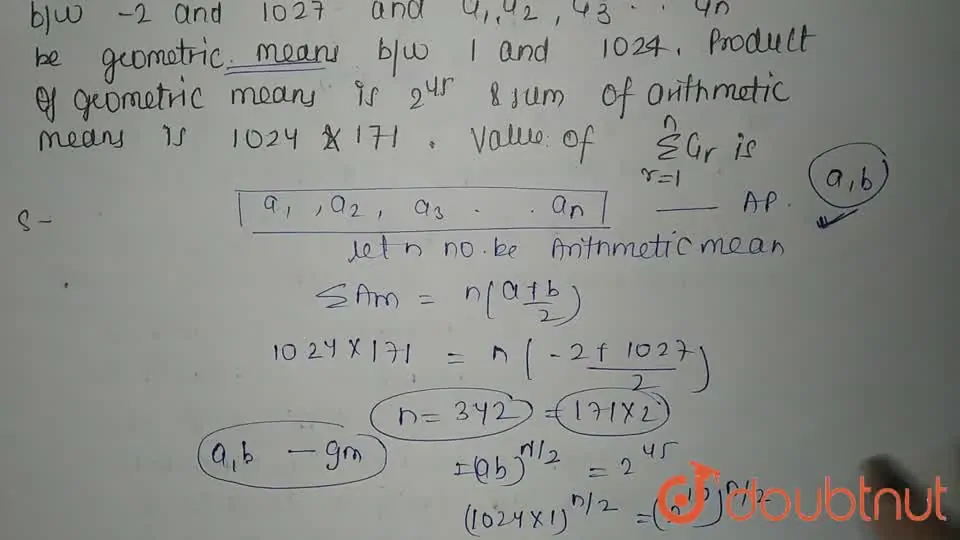 b/w -2 and 1027 and G1, G2, G3 . . Gn
be geometric means b/w 1 and 1024. Product
of geometric means is 2^45 & sum of arithmetic
means is 1024 x 171. Value of n Σ Gr is r=1
a,b
S- a1, a2, a3 . . an — AP.
let n no. be Arithmetic mean
ΣAm = n(a+b/2)
1024 x 171 = n(-2+1027/2)
n = 342 = 171x2
a,b - gm = (ab)^n/2 = 2^45
(1024x1)^n/2 = (2^10)^n/2
doubtnut